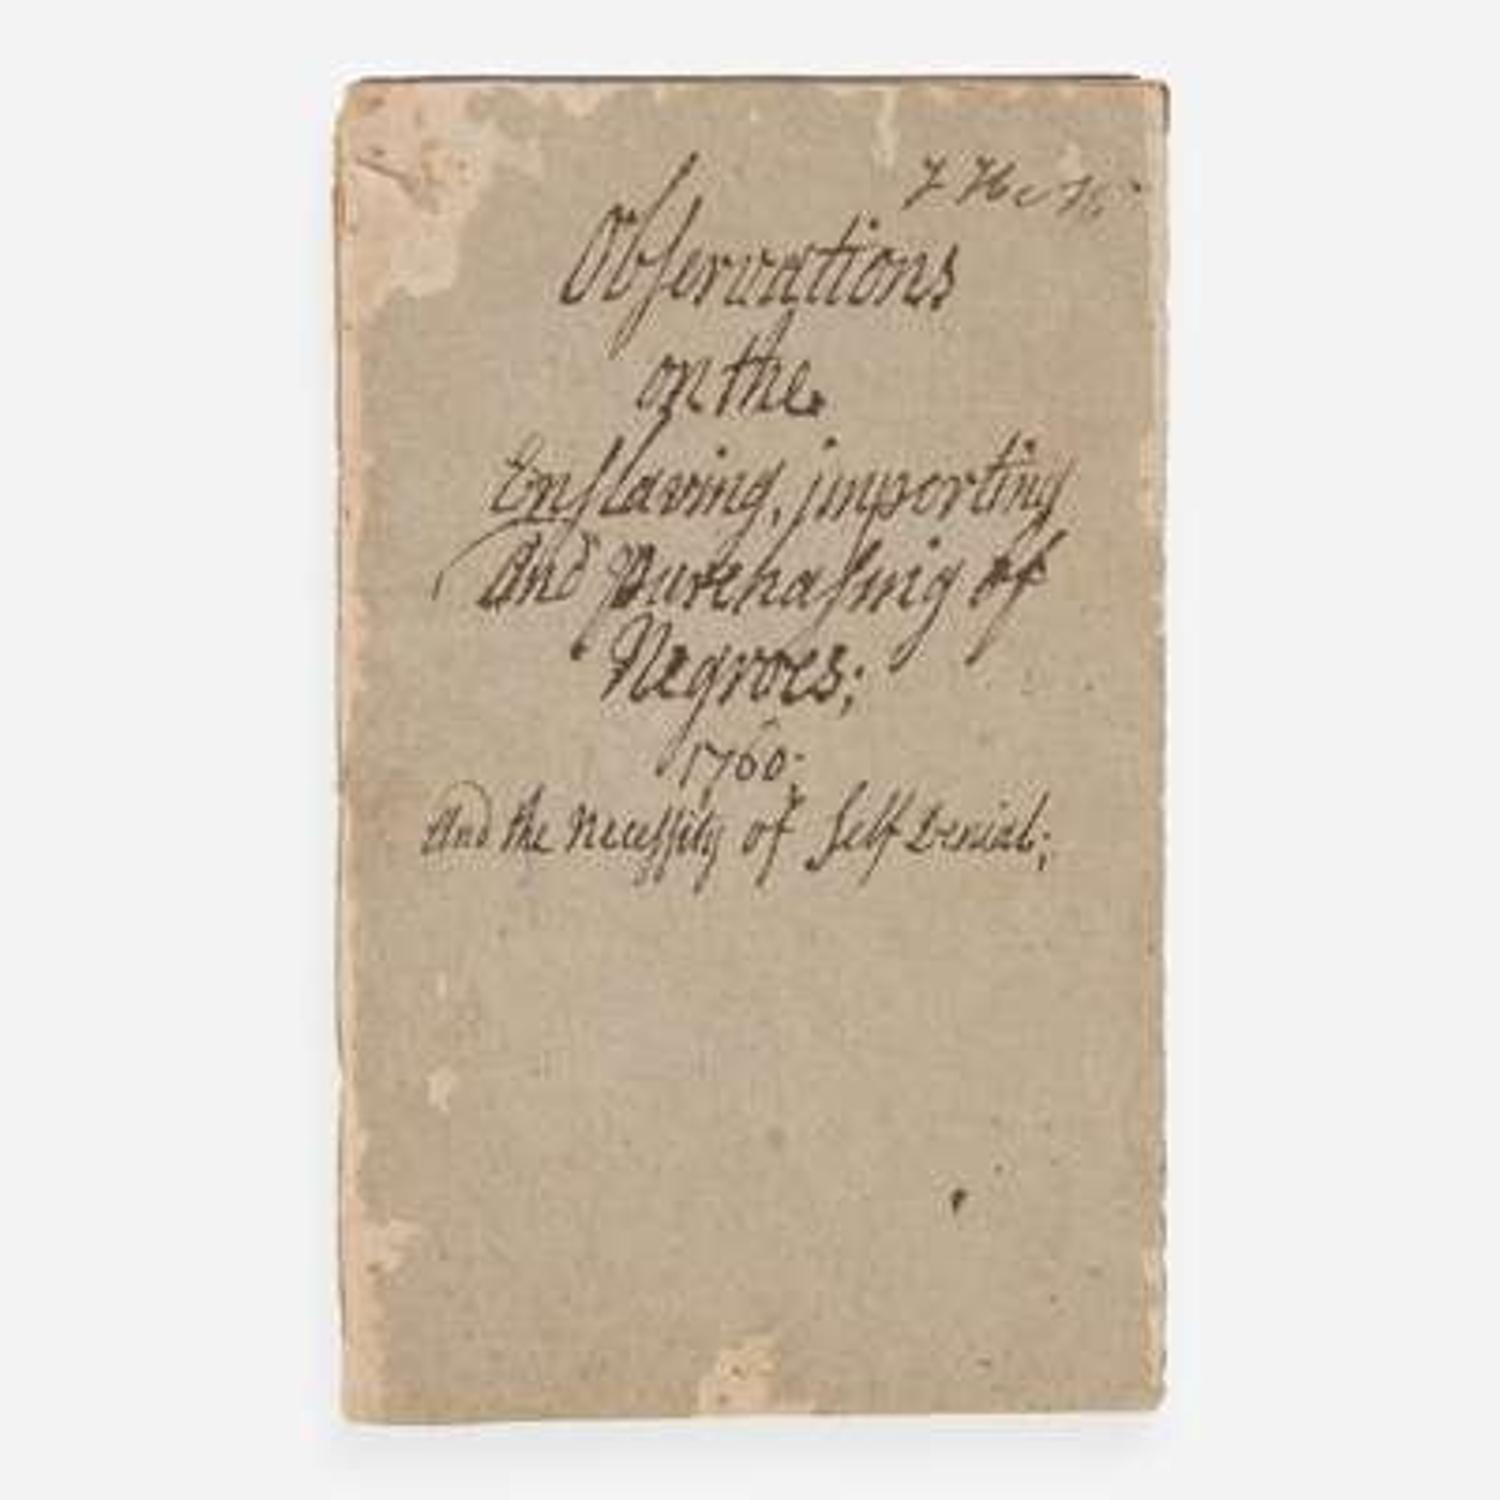 Obſervations
on the
Enſlaving, importing
And Purchaſing of
Negroes;
1760;
And the Neceſſity of Self Denial;